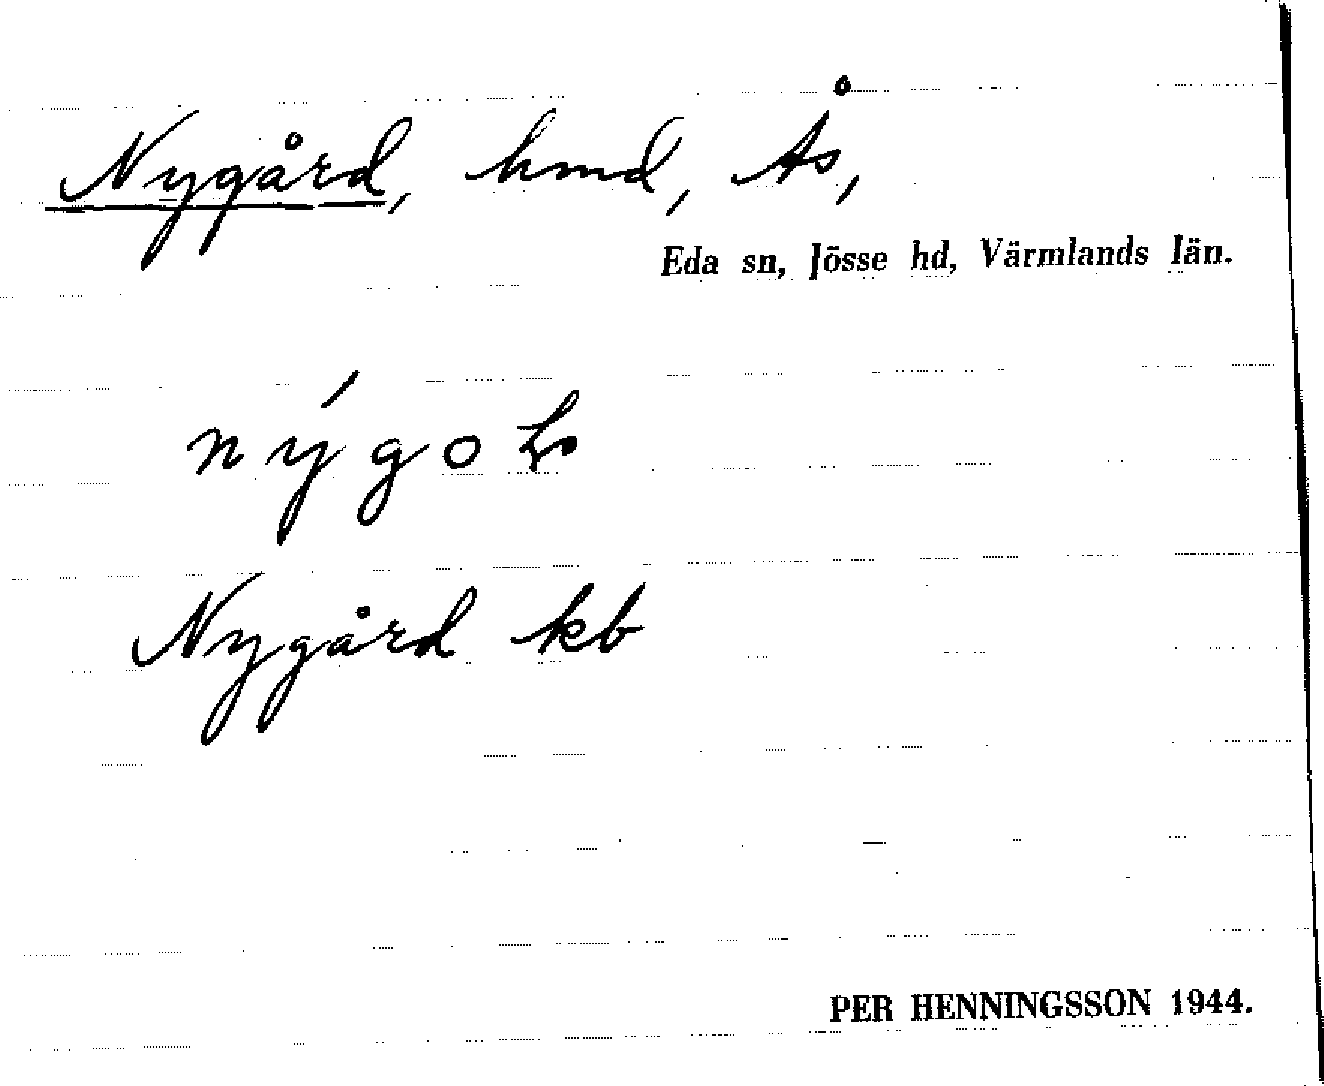 Nygård, hmd, Ås,
Eda sn, Jösse hd, Värmlands län.
Nygård kb
PER HENNINGSSON 1944.